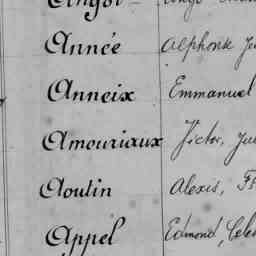 Année Alphonse
Anneix Emmanuel
Amouriaux Victor,
Aoutin Alexis,
Appel Edmond,